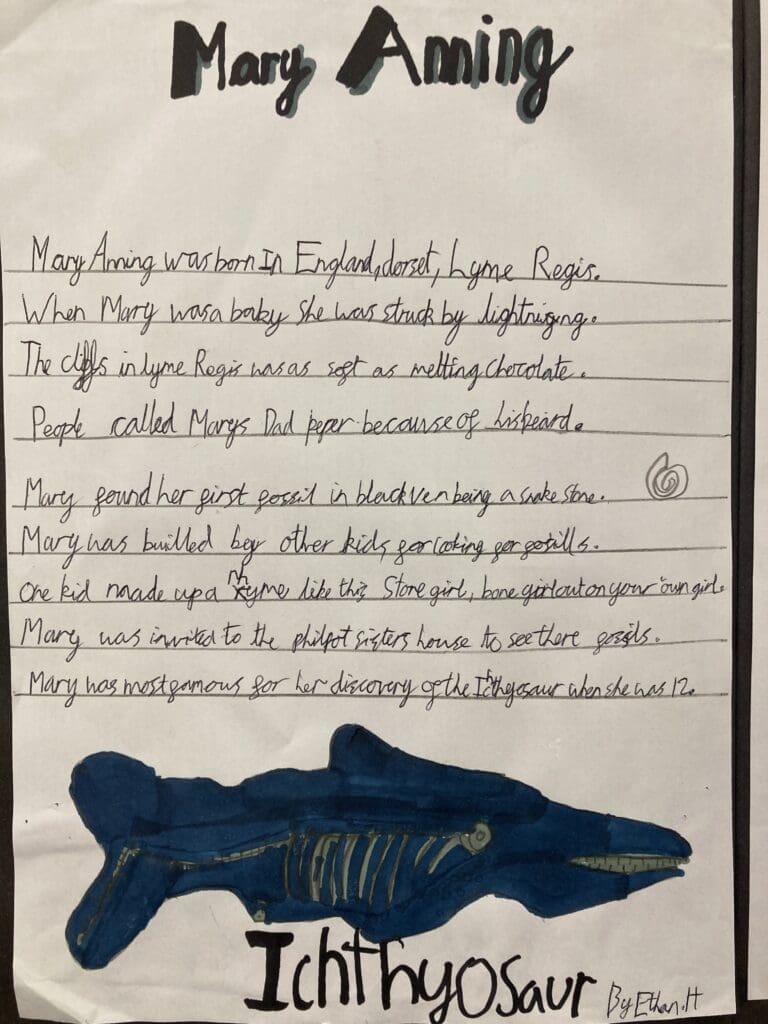 Mary Anning
Mary Anning was born In England, dorset, Lyme Regis.
When Mary was a baby she was struck by lightniging.
The cliffs in lyme Regis was as soft as melting chocolate.
People called Marys Dad peper because of his beard.
Mary found her first fossil in black ven being a snake stone.
Mary was builled by other kids for looking for fosills.
One kid made up a rhyme like this Stone girl, bone girl out on your own girl.
Mary was invited to the philpot sisters house to see there fossils.
Mary was most famous for her discovery of the Ichthyosaur when she was 12.
Ichthyosaur
By Ethan.H